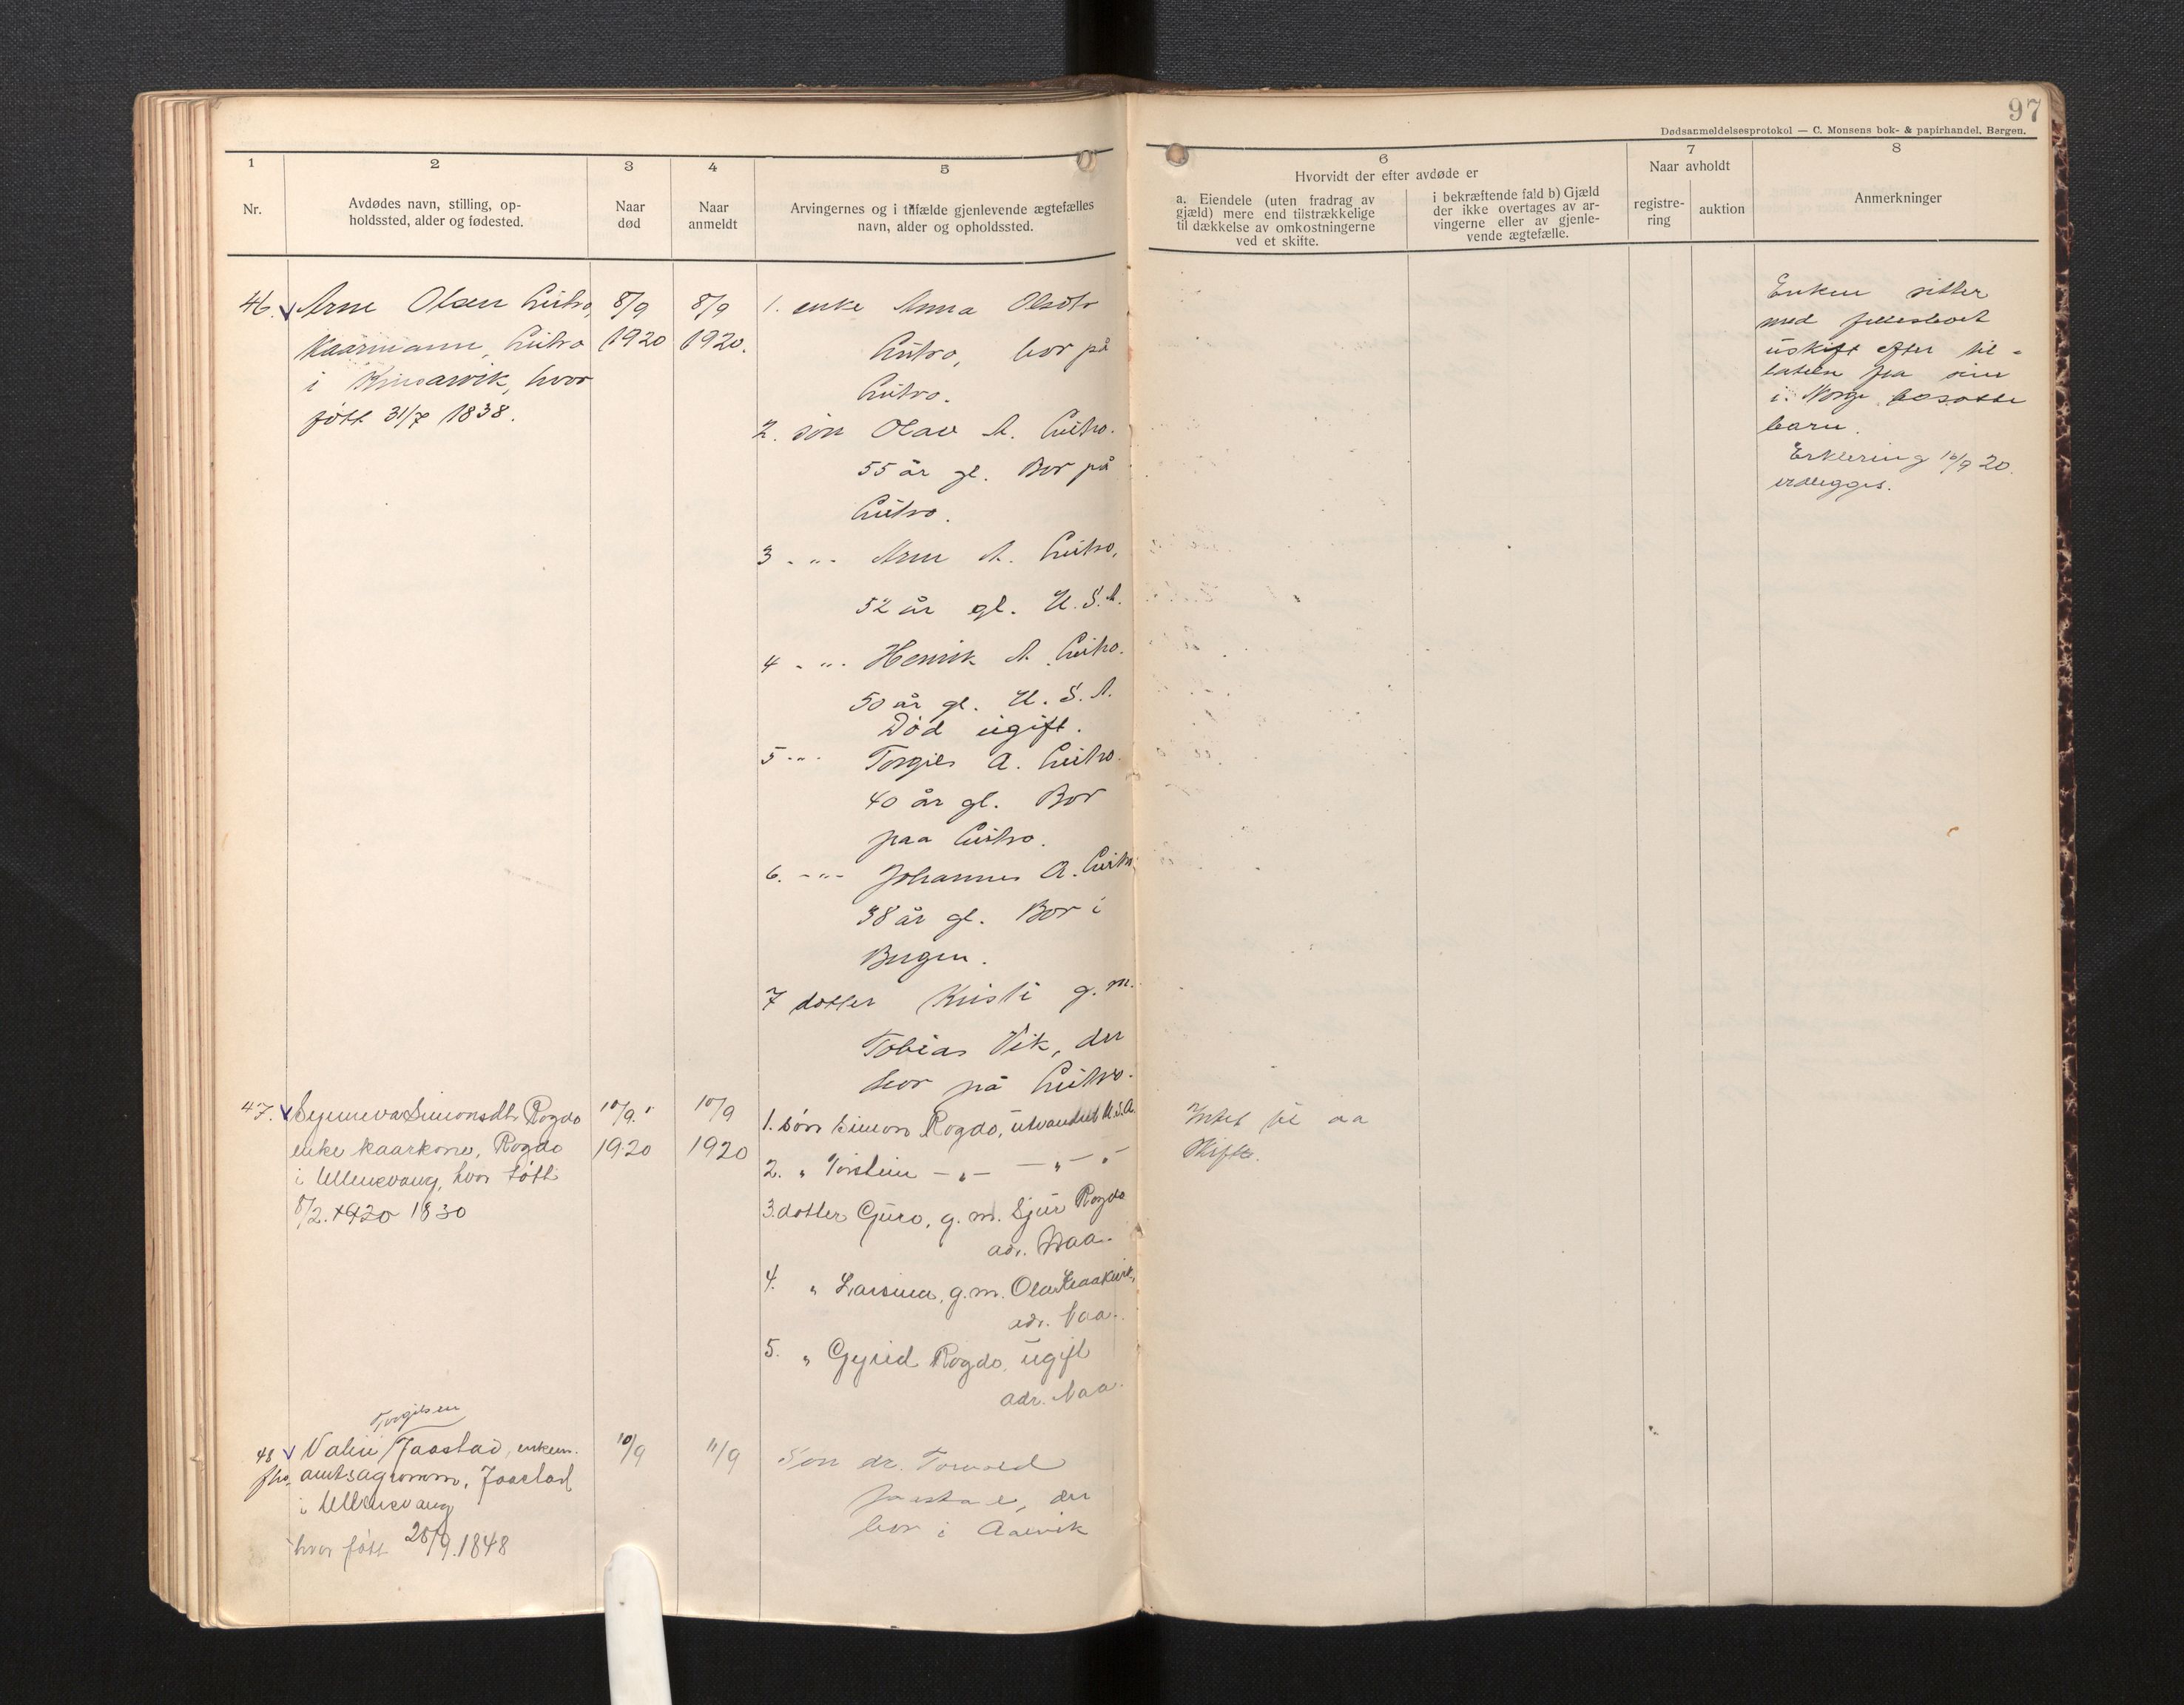 97
Dødsanmeldelsesprotokol — C. Monsens bok- & papirhandel. Bergen.
1
2
3
4
5
6
7
8
Nr.
Avdødes navn, stilling, op-
holdssted, alder og fødested.
Naar
død
Naar
anmeldt
Arvingernes og i tilfælde gjenlevende ægtefælles
navn, alder og opholdssted.
Hvorvidt der efter avdøde er
a. Eiendele (uten fradrag av
gjæld) mere end tilstrækkelige
til dækkelse av omkostningerne
ved et skifte.
i bekræftende fald b) Gjæld
der ikke overtages av ar-
vingerne eller av gjenle-
vende ægtefælle.
Naar avholdt
registre-
ring
auktion
Anmerkninger
46. Arne Olsen Lutro,
Kaarmann, Lutro
i Kinsarvik, hvor
født 31/7 1838.
8/9
1920
8/9
1920.
1. enke Anna Olsdtr
Lutro, bor på
Lutro.
2. søn Olav A. Lutro.
55 år gl. Bor på
Lutro.
3 - " - Arne A. Lutro,
52 år gl. U.S.A.
4 - " - Henrik A. Lutro.
50 år gl. U.S.A.
Død ugift.
5 - " - Torgils A. Lutro.
40 år gl. Bor
paa Lutro.
6. - " - Johannes A. Lutro,
38 år gl. Bor i
Bergen.
7 dotter Kristi g.m.
Tobias Vik, der
bor på Lutro.
Enken sitter
med fellesboet
uskift efter til-
latelse fra sine
i Norge bosatte
barn.
Erklering 16/9 20.
vedlegges.
47. Synneva Simonsdtr Rogdo
enke kaarkone, Rogdo
i Ullensvang, hvor født
8/2. 1920 1830
10/9.
1920
10/9
1920
1. søn Simon Rogdo, utvandret U.S.A.
2. " Torstein - " - - " - "
3. dotter Guro, g.m. Sjur Rogdo
adr. Naa.
4. " Larsina, g.m. Olav
adr. Naa.
5. " Gyrid Rogdo, ugift
adr. Naa.
Intet til aa
skifte.
Torgilsen
48 Valen Jaastad, enkem.
fho. amtsagronom, Jaastad
i Ullensvang
hvor født 28/9.1848
10/9
11/9
Søn dr. Torvald
Jaastad, der
bor i Aalvik